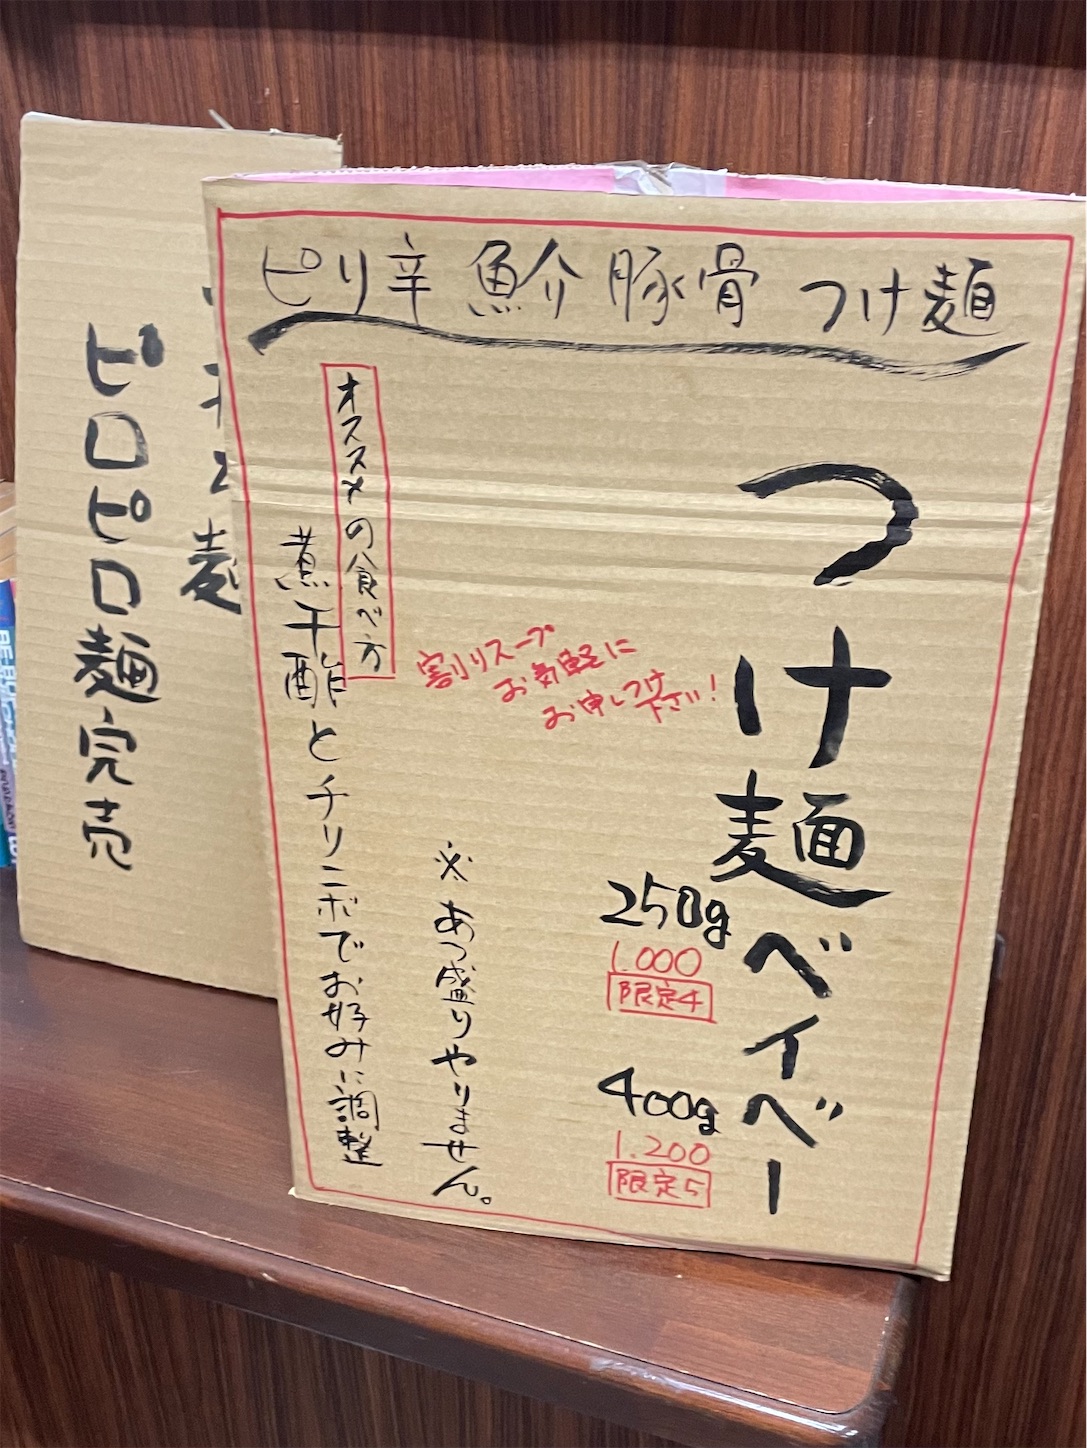 ピリ辛 魚介 豚骨 つけ麺
つけ麺ベイベー
250g
1.000
限定4
400g
1.200
限定5
割りスープ
お気軽に
お申しつけ
下さい!
※あつ盛りやりません。
オススメの食べ方
煮干酢とチリニボでお好みに調整
ピロピロ麺完売